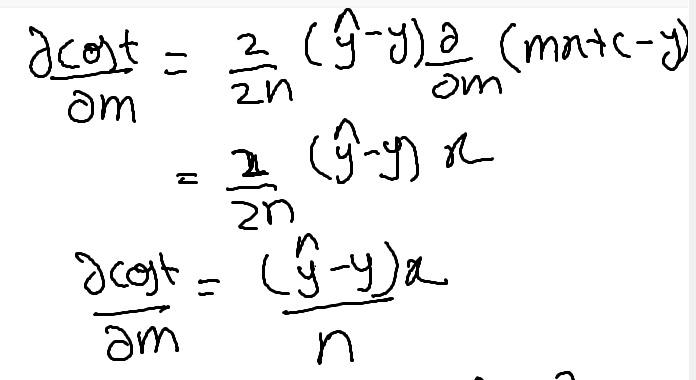 ∂cost/∂m = 2/2n (ŷ-y) ∂/∂m (mx+c-y)
= 2/2n (ŷ-y) x
∂cost/∂m = (ŷ-y)x/n